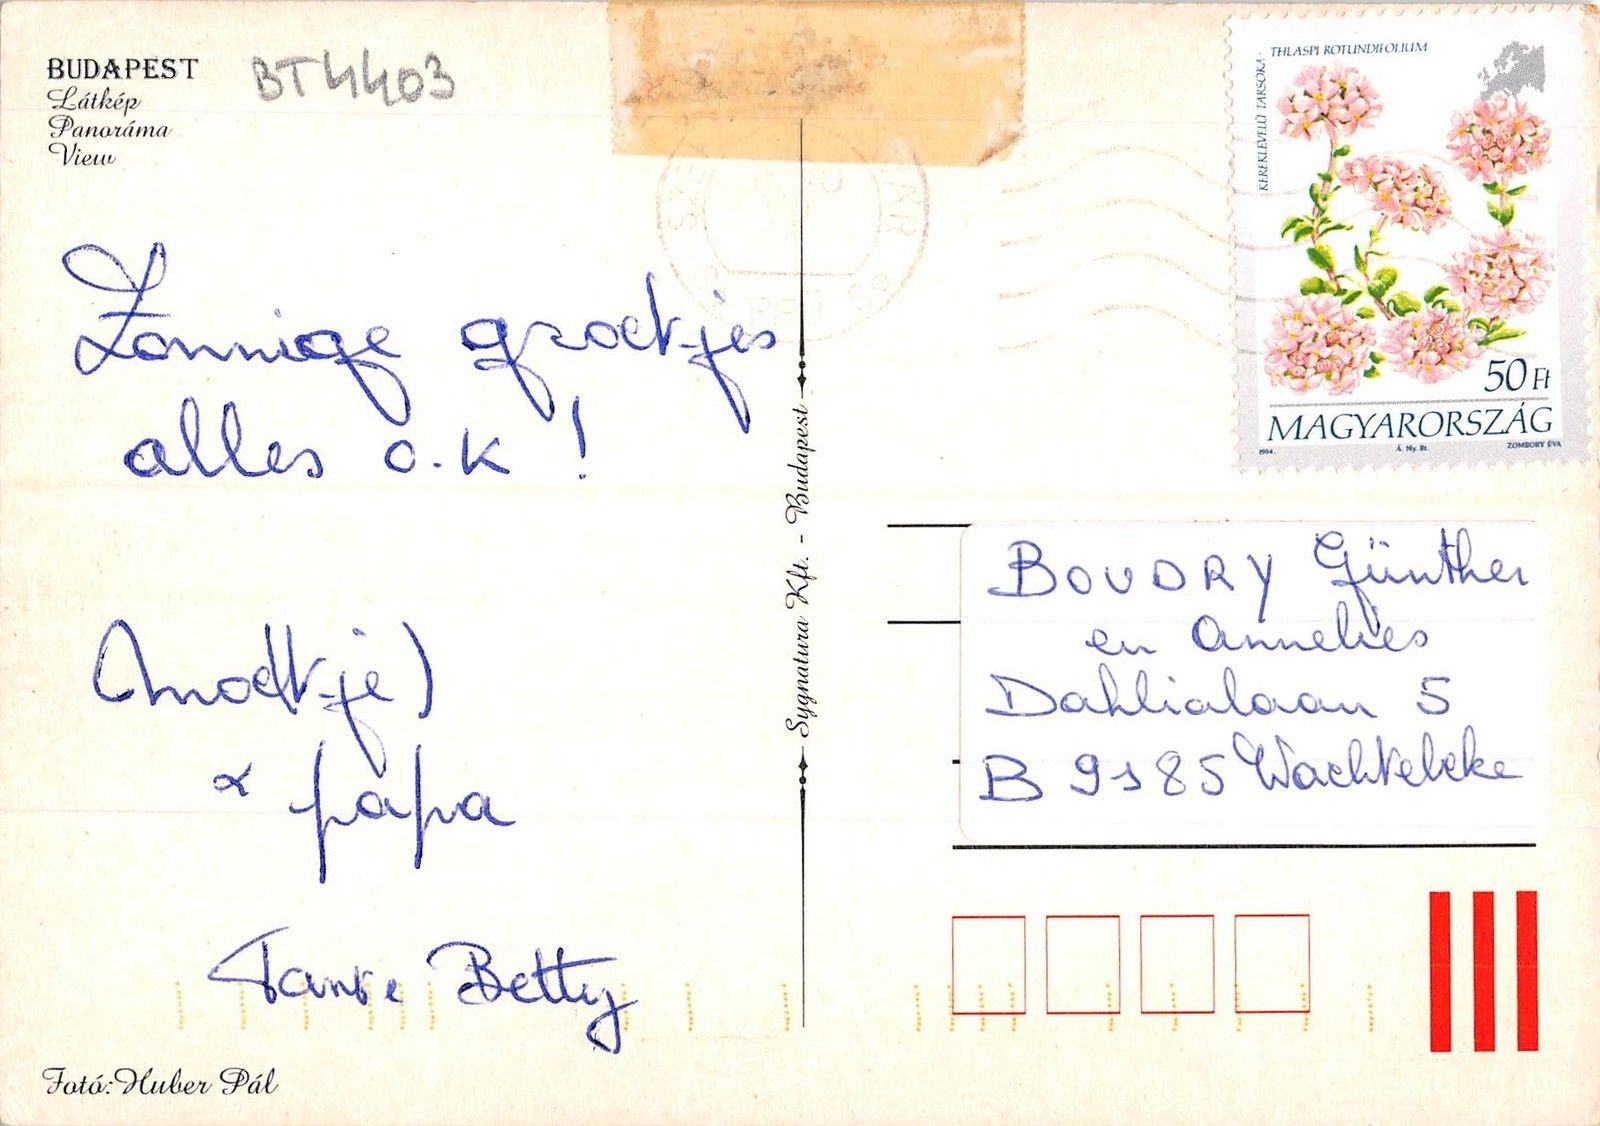 BUDAPEST
Látkép
Panoráma
View
BT4403
Zonnige groetjes
alles o.k !
papa
Tante Betty
Fotó: Huber Pál
Sygnatura Kft. - Budapest
THLASPI ROTUNDIFOLIUM
KEREKLEVELŰ TARSÓKA
50 Ft
MAGYARORSZÁG
1994. Á. Ny. Rt. ZOMBORY ÉVA
BOUDRY Günther
en Annelies
Dahlialaan 5
B 9185 Wachtebeke